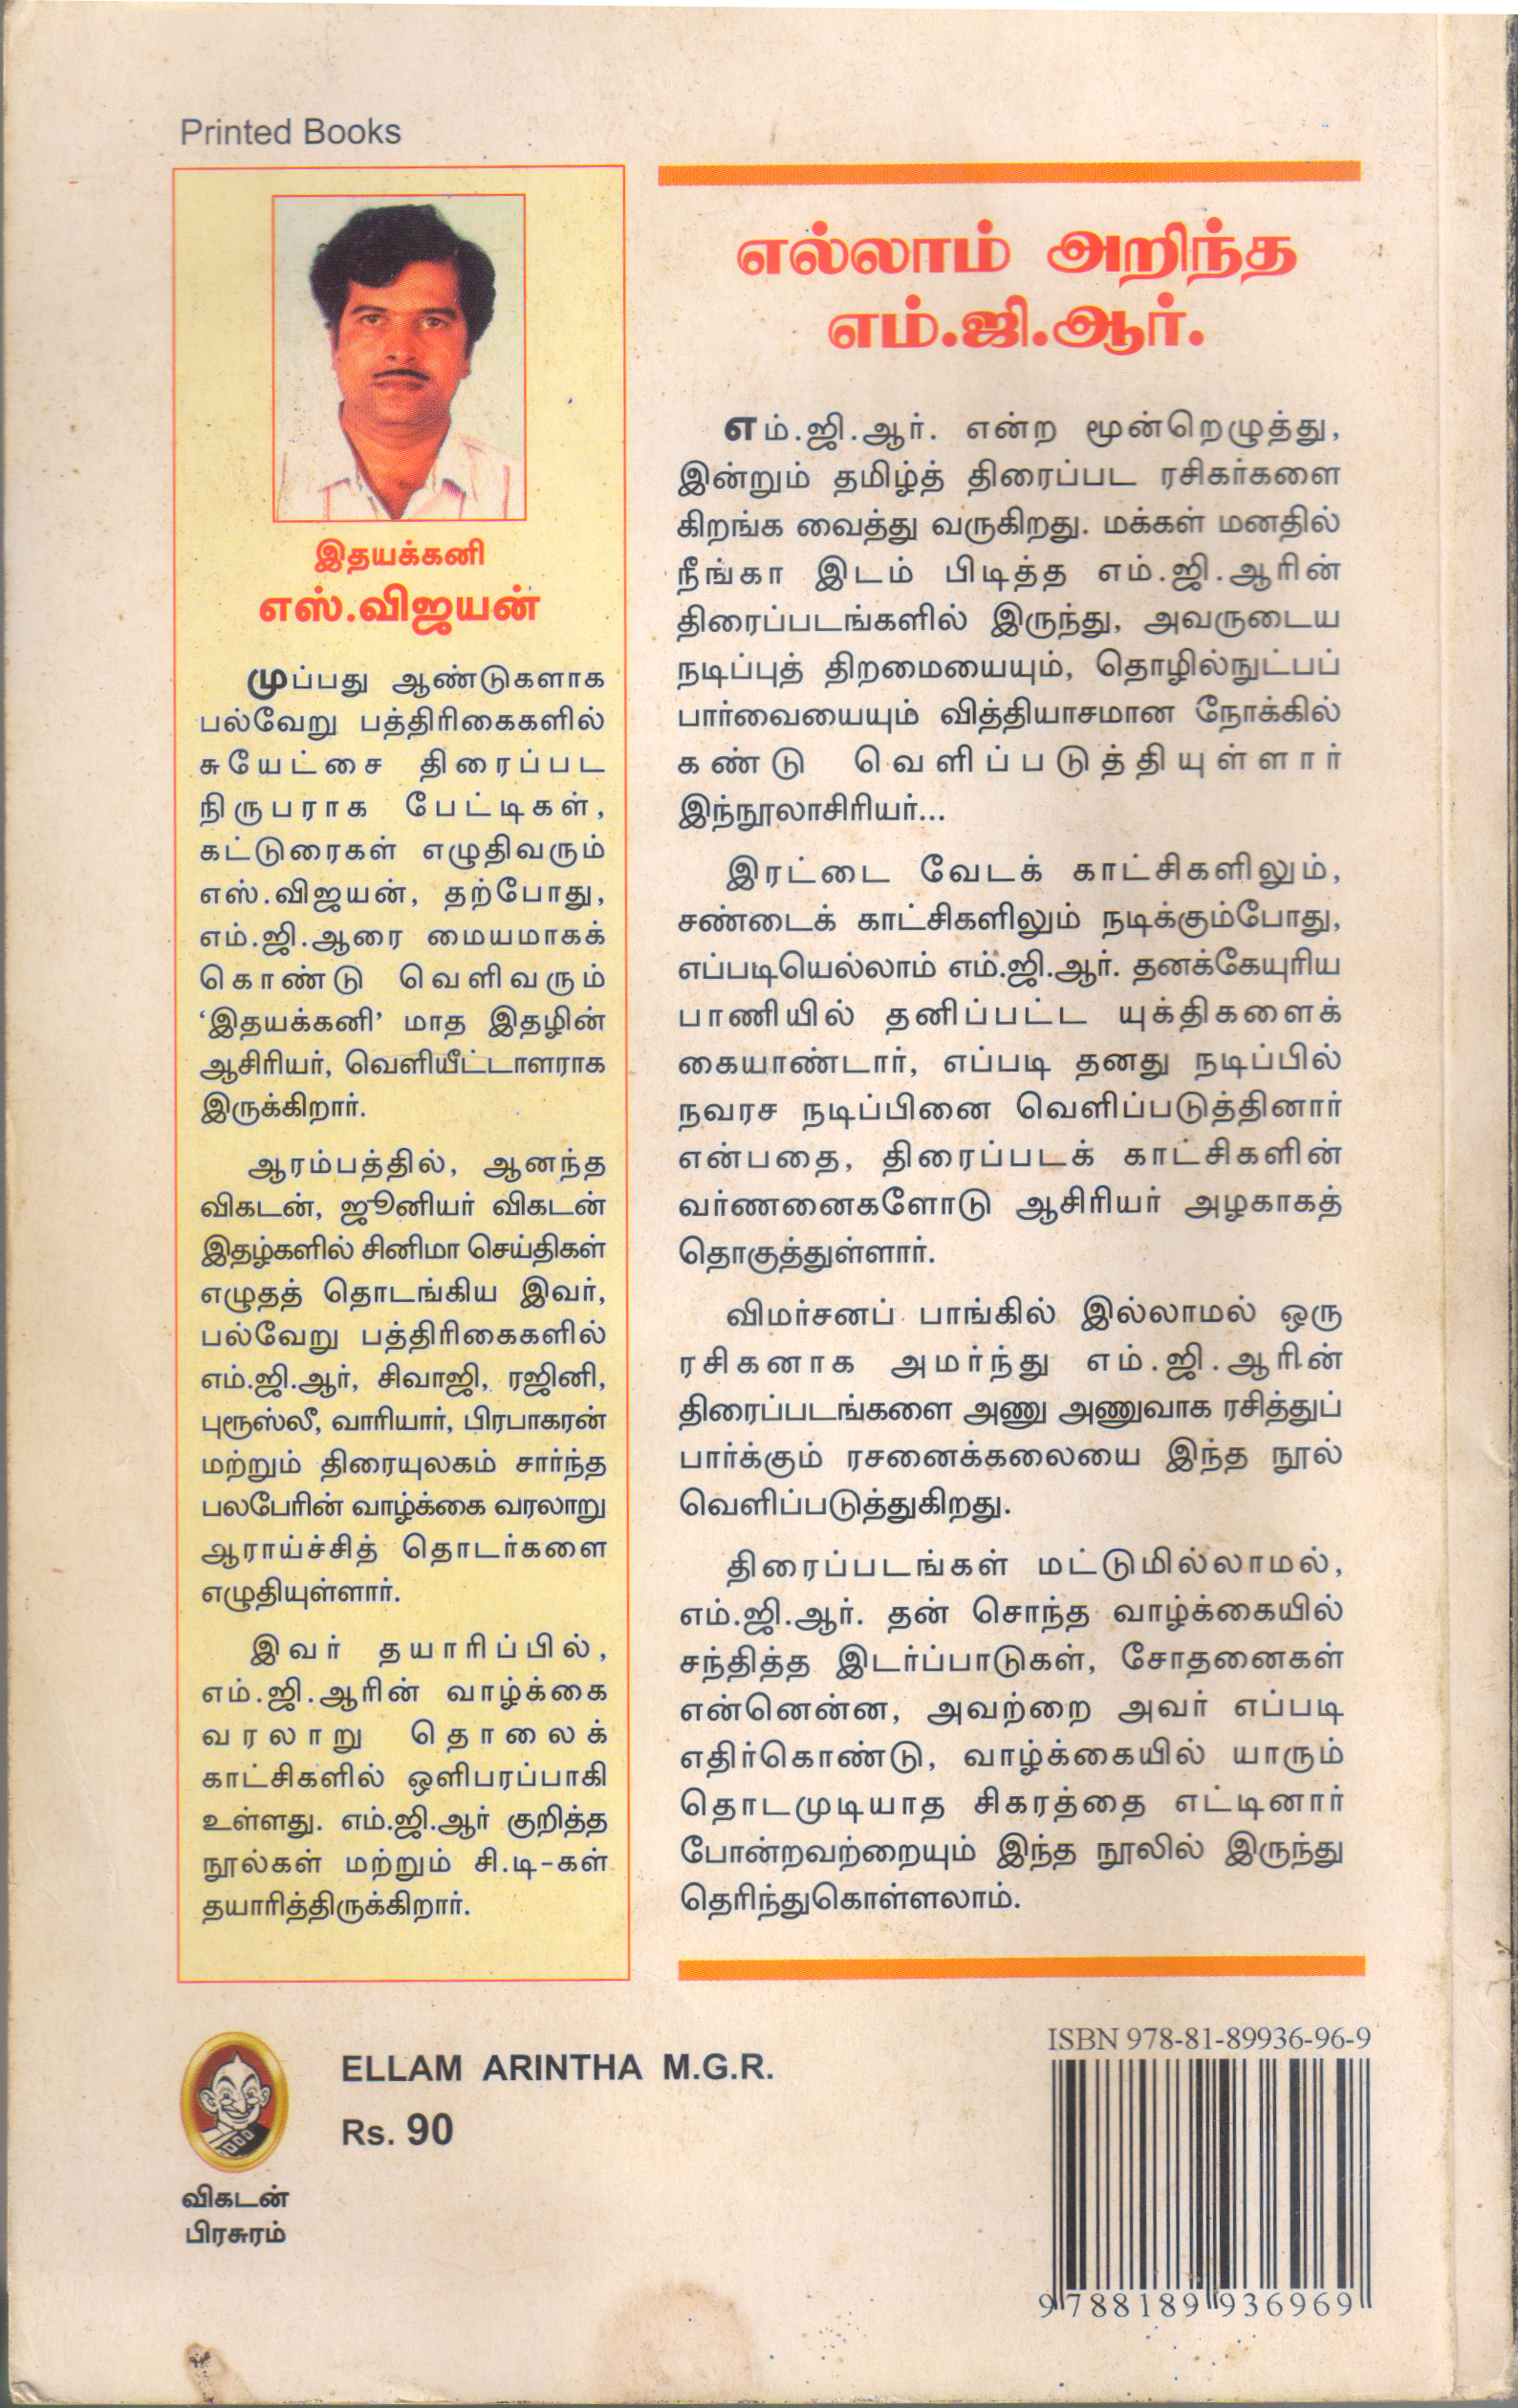 Printed Books
இதயக்கனி
எஸ்.விஜயன்
முப்பது ஆண்டுகளாக
பல்வேறு பத்திரிகைகளில்
சுயேட்சை திரைப்பட
நிருபராக பேட்டிகள்,
கட்டுரைகள் எழுதிவரும்
எஸ்.விஜயன், தற்போது,
எம்.ஜி.ஆரை மையமாகக்
கொண்டு வெளிவரும்
‘இதயக்கனி’ மாத இதழின்
ஆசிரியர், வெளியீட்டாளராக
இருக்கிறார்.
ஆரம்பத்தில், ஆனந்த
விகடன், ஜூனியர் விகடன்
இதழ்களில் சினிமா செய்திகள்
எழுதத் தொடங்கிய இவர்,
பல்வேறு பத்திரிகைகளில்
எம்.ஜி.ஆர், சிவாஜி, ரஜினி,
புரூஸ்லீ, வாரியார், பிரபாகரன்
மற்றும் திரையுலகம் சார்ந்த
பலபேரின் வாழ்க்கை வரலாறு
ஆராய்ச்சித் தொடர்களை
எழுதியுள்ளார்.
இவர் தயாரிப்பில்,
எம்.ஜி.ஆரின் வாழ்க்கை
வரலாறு தொலைக்
காட்சிகளில் ஒளிபரப்பாகி
உள்ளது. எம்.ஜி.ஆர் குறித்த
நூல்கள் மற்றும் சி.டி-கள்
தயாரித்திருக்கிறார்.
எல்லாம் அறிந்த
எம்.ஜி.ஆர்.
எம்.ஜி.ஆர். என்ற மூன்றெழுத்து,
இன்றும் தமிழ்த் திரைப்பட ரசிகர்களை
கிறங்க வைத்து வருகிறது. மக்கள் மனதில்
நீங்கா இடம் பிடித்த எம்.ஜி.ஆரின்
திரைப்படங்களில் இருந்து, அவருடைய
நடிப்புத் திறமையையும், தொழில்நுட்பப்
பார்வையையும் வித்தியாசமான நோக்கில்
கண்டு வெளிப்படுத்தியுள்ளார்
இந்நூலாசிரியர்...
இரட்டை வேடக் காட்சிகளிலும்,
சண்டைக் காட்சிகளிலும் நடிக்கும்போது,
எப்படியெல்லாம் எம்.ஜி.ஆர். தனக்கேயுரிய
பாணியில் தனிப்பட்ட யுக்திகளைக்
கையாண்டார், எப்படி தனது நடிப்பில்
நவரச நடிப்பினை வெளிப்படுத்தினார்
என்பதை, திரைப்படக் காட்சிகளின்
வர்ணனைகளோடு ஆசிரியர் அழகாகத்
தொகுத்துள்ளார்.
விமர்சனப் பாங்கில் இல்லாமல் ஒரு
ரசிகனாக அமர்ந்து எம்.ஜி.ஆரின்
திரைப்படங்களை அணு அணுவாக ரசித்துப்
பார்க்கும் ரசனைக்கலையை இந்த நூல்
வெளிப்படுத்துகிறது.
திரைப்படங்கள் மட்டுமில்லாமல்,
எம்.ஜி.ஆர். தன் சொந்த வாழ்க்கையில்
சந்தித்த இடர்ப்பாடுகள், சோதனைகள்
என்னென்ன, அவற்றை அவர் எப்படி
எதிர்கொண்டு, வாழ்க்கையில் யாரும்
தொடமுடியாத சிகரத்தை எட்டினார்
போன்றவற்றையும் இந்த நூலில் இருந்து
தெரிந்துகொள்ளலாம்.
விகடன்
பிரசுரம்
ELLAM ARINTHA M.G.R.
Rs. 90
ISBN 978-81-89936-96-9
9 788189 936969